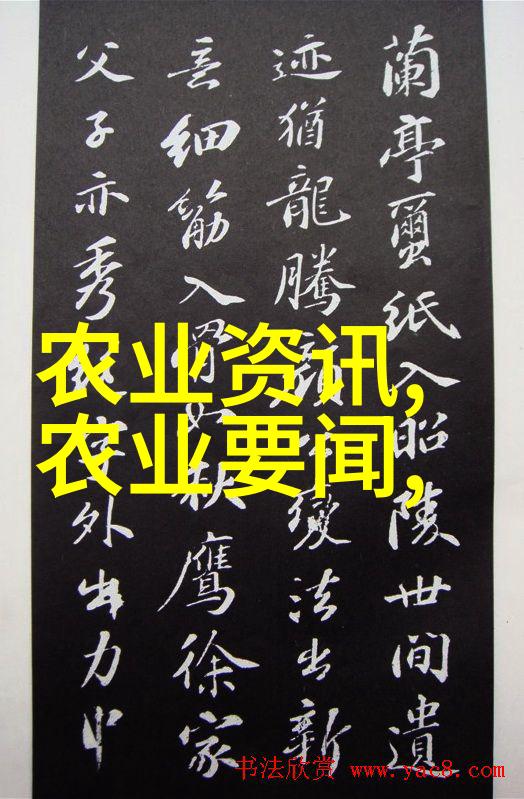 蘭亭蠒紙入昭陵世間遺
迹猶龍騰顔公變法出新
意細筋入骨如秋鷹徐家
父子亦秀絶字外出力中
农业资讯,
农业要闻,
书法欣赏 www.yac8.com